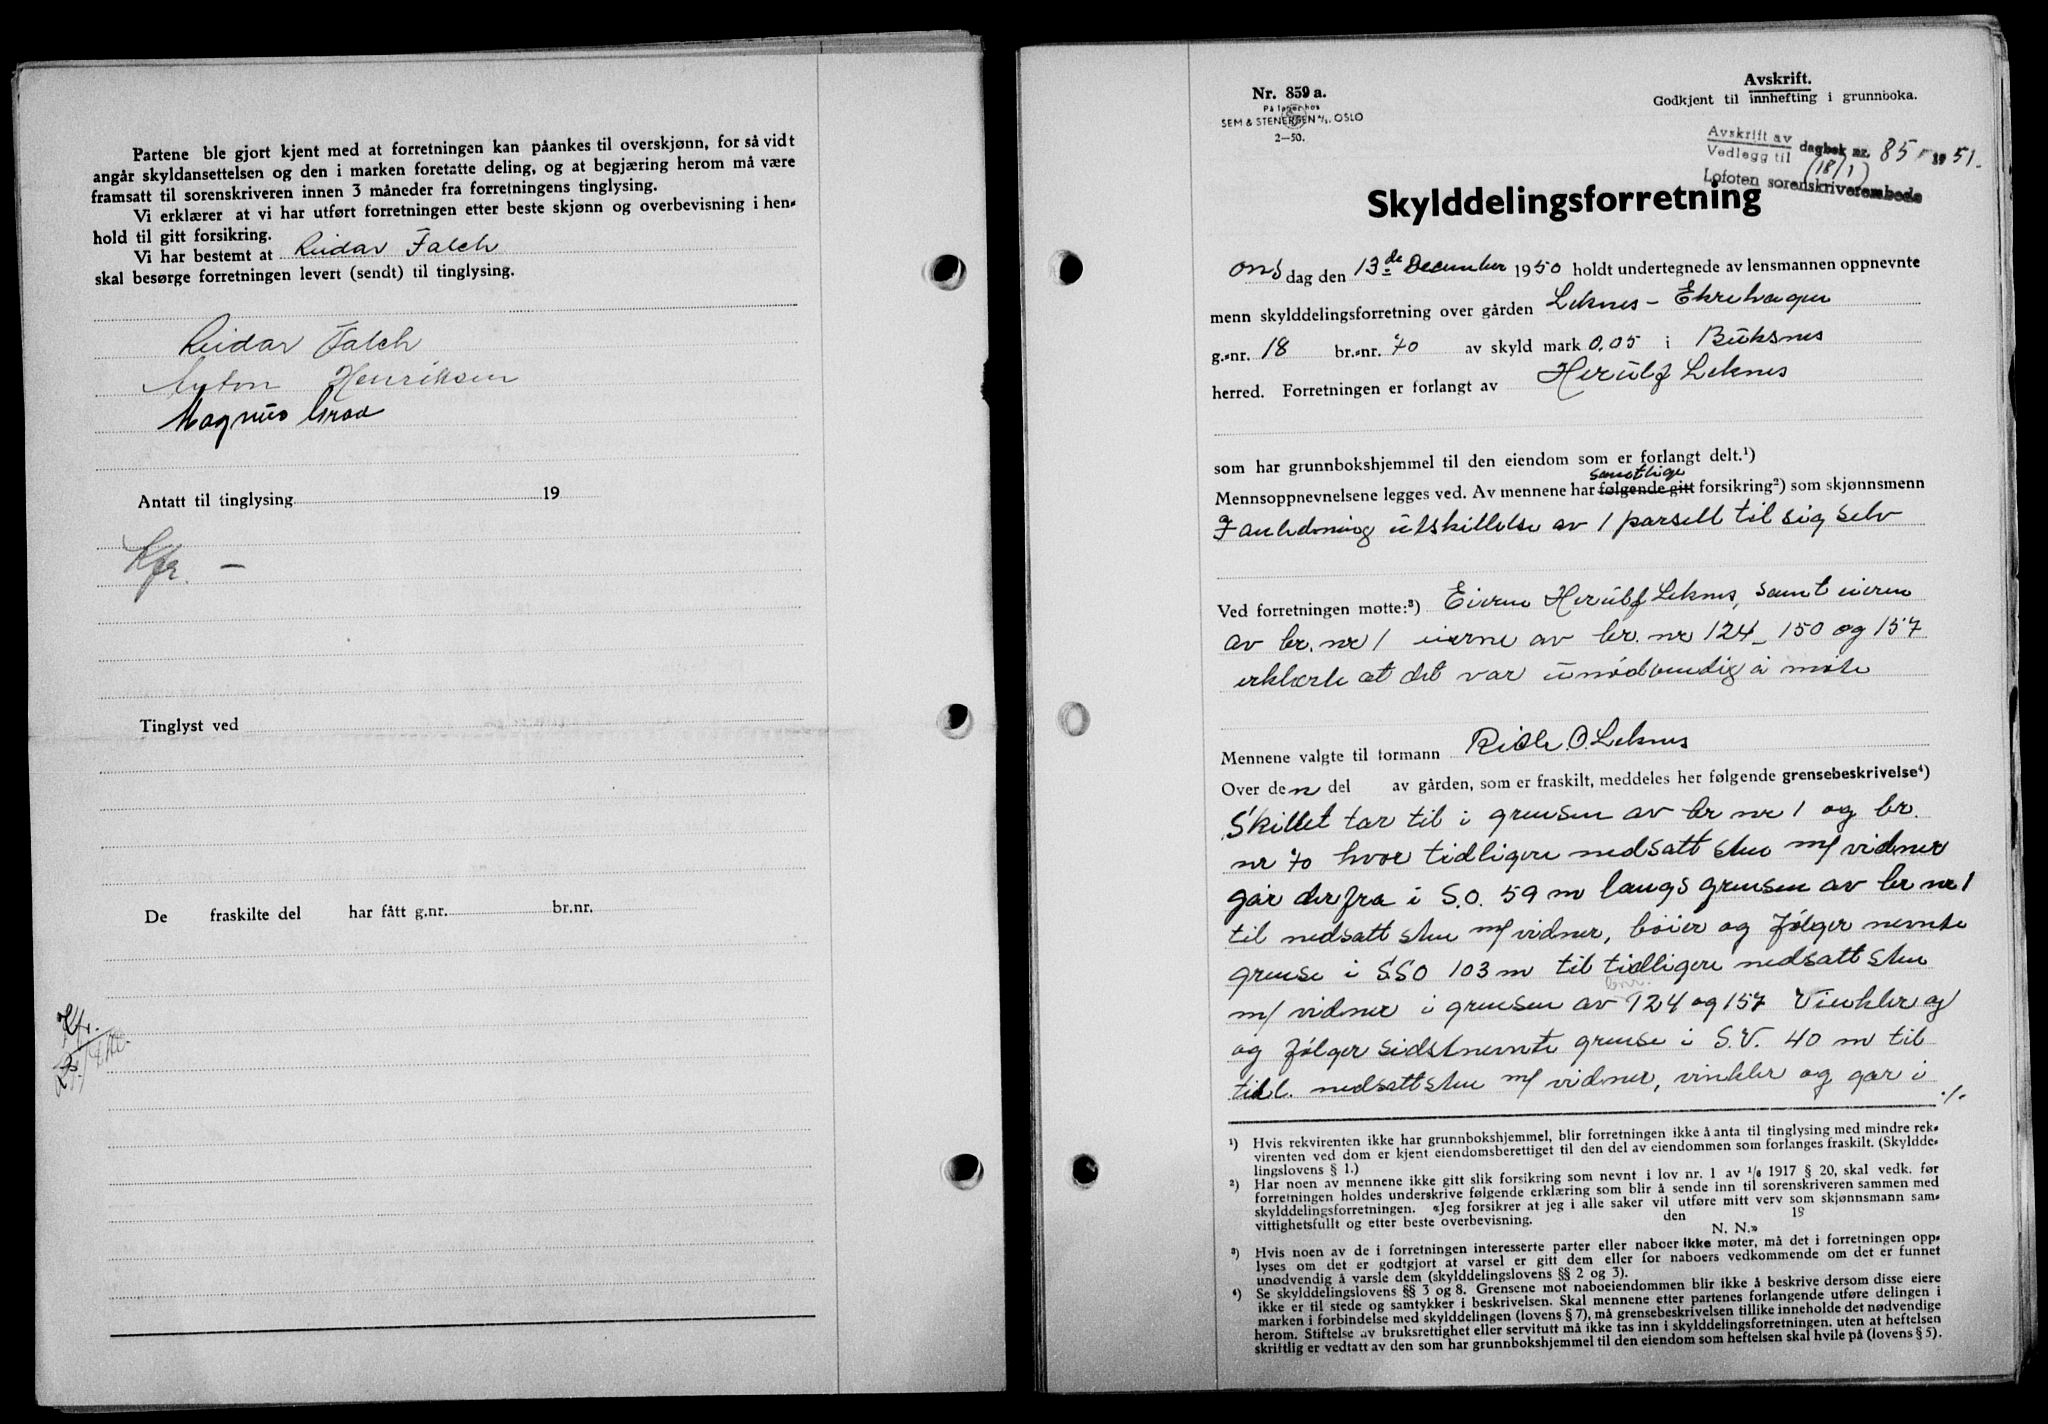 Partene ble gjort kjent med at forretningen kan påankes til overskjønn, for så vidt
angår skyldansettelsen og den i marken foretatte deling, og at begjæring herom må være
framsatt til sorenskriveren innen 3 måneder fra forretningens tinglysing.
Vi erklærer at vi har utført forretningen etter beste skjønn og overbevisning i hen-
hold til gitt forsikring.
Vi har bestemt at Reidar Falch
skal besørge forretningen levert (sendt) til tinglysing.
Reidar Falch
Anton Henriksen
Magnus Graa
Antatt til tinglysing 19
Kfr. –
Tinglyst ved
De fraskilte del har fått g.nr. br.nr.
Kfr.
Nr. 859 a.
På lager hos
SEM & STENERSEN A/S, OSLO
2—50.
Avskrift.
Godkjent til innhefting i grunnboka.
Avskrift av
Vedlegg til dagbok nr. 85 1951.
(18/1)
Lofoten sorenskriverembede
Skylddelingsforretning
onsdag den 13de December 1950 holdt undertegnede av lensmannen oppnevnte
menn skylddelingsforretning over gården Leknes - Ekrehagen
g.-nr. 18 br.-nr. 70 av skyld mark 0,05 i Buksnes
herred. Forretningen er forlangt av Herulf Leknes
som har grunnbokshjemmel til den eiendom som er forlangt delt.¹)
samtlige
Mennsoppnevnelsene legges ved. Av mennene har følgende gitt forsikring²) som skjønnsmenn
I anledning utskillelse av 1 parsell til sig selv
Ved forretningen møtte:³) Eieren Herulf Leknes, samt eieren
av br. nr 1 eierne av br. nr 124 - 150 og 157
erklærte at det var unødvendig å møte
Mennene valgte til formann O. Leknes
Over den del av gården, som er fraskilt, meddeles her følgende grensebeskrivelse⁴)
Skillet tar til i grensen av br nr 1 og br.
nr 70 hvor tidligere nedsatt sten m/ vidner
går derfra i S.O. 59 m langs grensen av br nr 1
til nedsatt sten m/ vidner, bøier og følger nevnte
grense i SSO 103 m til tidligere nedsatt sten
bnr.
m/ vidner i grensen av 124 og 157 Vinkler og
og følger sidstnevnte grense i S.V. 40 m til
tidl. nedsatt sten m/ vidner, vinkler og går i
./.
¹) Hvis rekvirenten ikke har grunnbokshjemmel, blir forretningen ikke å anta til tinglysing med mindre rek-
virenten ved dom er kjent eiendomsberettiget til den del av eiendommen som forlanges fraskilt. (Skyldde-
lingslovens § 1.)
²) Har noen av mennene ikke gitt slik forsikring som nevnt i lov nr. 1 av ¹/₆ 1917 § 20, skal vedk. før
forretningen holdes underskrive følgende erklæring som blir å sende inn til sorenskriveren sammen med
skylddelingsforretningen. «Jeg forsikrer at jeg i alle saker vil utføre mitt verv som skjønnsmann sam-
vittighetsfullt og etter beste overbevisning. den 19
N. N.»
³) Hvis noen av de i forretningen interesserte parter eller naboer ikke møter, må det i forretningen opp-
lyses om det er godtgjort at varsel er gitt dem eller for naboers vedkommende om det er funnet
unødvendig å varsle dem (skylddelingslovens §§ 2 og 3).
⁴) Se skylddelingslovens §§ 3 og 8. Grensene mot naboeiendommen blir ikke å beskrive dersom disse eiere
ikke er til stede og samtykker i beskrivelsen. Skal mennene etter partenes forlangende utføre delingen i
marken i forbindelse med skylddelingen (lovens § 7), må grensebeskrivelsen tillike inneholde det nødvendige
herom. Stiftelse av bruksrettighet eller servitutt må ikke tas inn i skylddelingsforretningen, uten at heftelsen
skriftlig er vedtatt av den som har grunnbokshjemmel til den eiendom som heftelsen skal hvile på (lovens § 5).